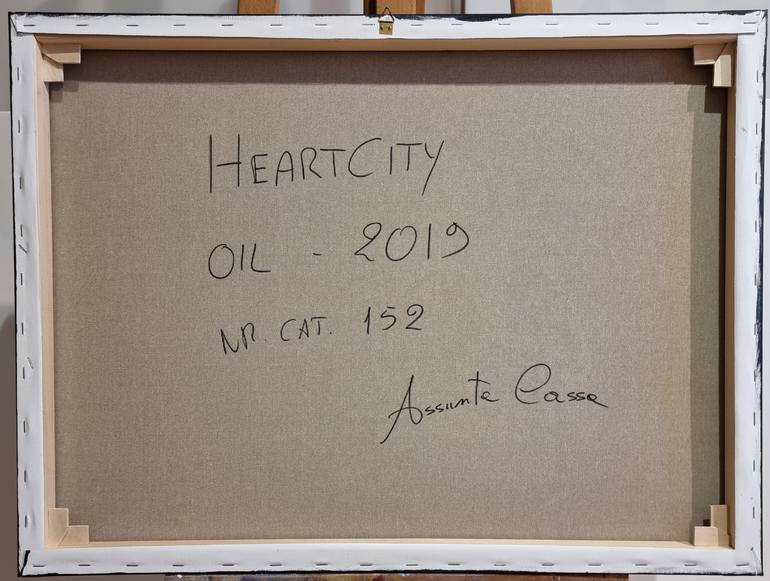 HEARTCITY
OIL - 2019
NR. CAT. 152
Assunta Cassa